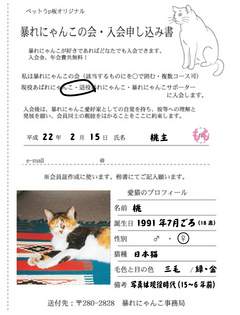 ペットうp板オリジナル
暴れにゃんこの会・入会申し込み書
暴れにゃんこが好きであればどなたでも入会できます。
入会金、年会費無料!
私は暴れにゃんこの会(該当するものを○で囲む・複数コース可)
現役あばれにゃんこ・退役暴れにゃんこ・暴れにゃんこサポーター
に入会します。
入会後は、暴れにゃんこ愛好家としての自覚を持ち、校等への理解と
発展を願い、会員同士の親睦をはかることをここに約束します。
平成 22 年 2 月 15 日 氏名 桃主
e-mail @
※会員証作成に使います。楷書にてご記入願います。
愛猫のプロフィール
名前 桃
誕生日 1991年7月ごろ(18歳)
性別 ♂ ・ ♀
猫種 日本猫
毛色と目の色 三毛 / 緑・金
備考 写真は現役時代(15~6年前)
送付先:〒280-2828 暴れにゃんこ事務局